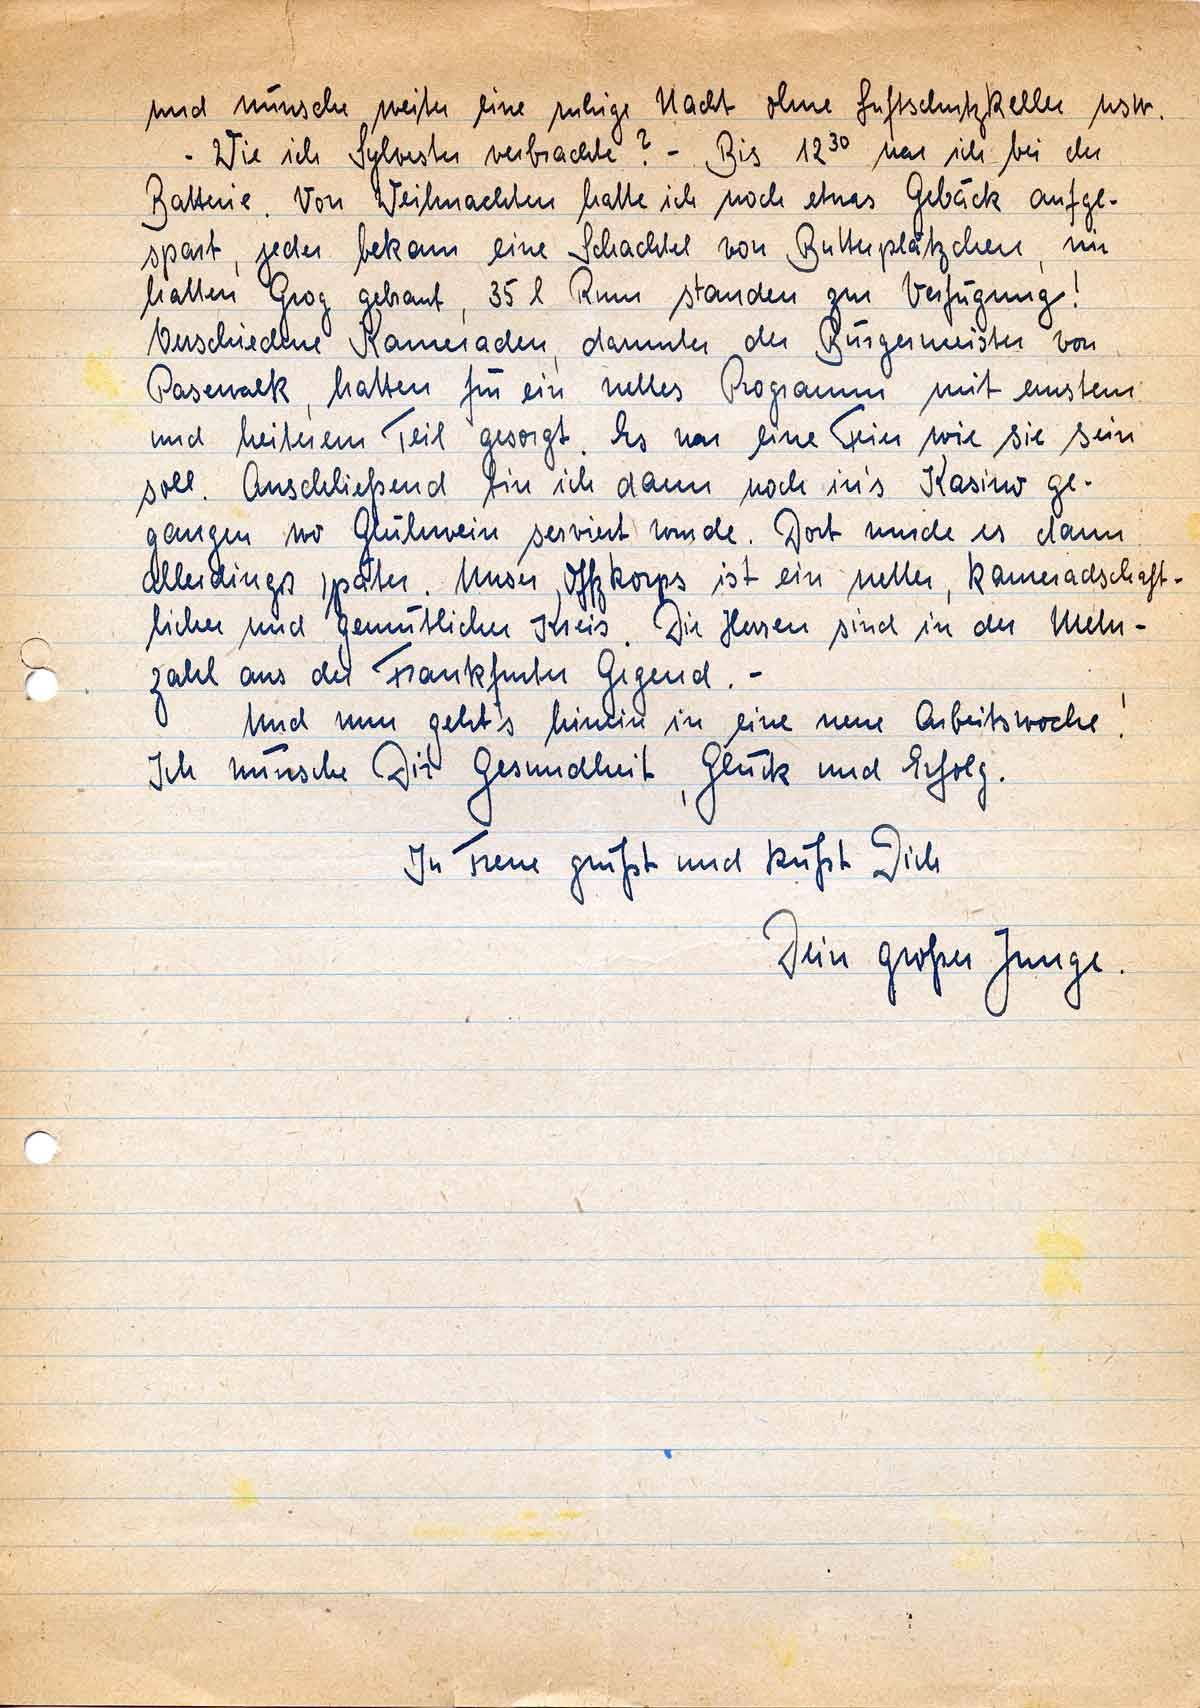 und wünsche weiter eine ruhige Nacht ohne Luftschutzkeller usw.
- Wie ich Sylvester verbrachte? - Bis 12³⁰ war ich bei der
Batterie. Von Weihnachten hatte ich noch etwas Gebäck aufge-
spart, jeder bekam eine Schachtel von Butterplätzchen, wir
hatten Grog gebraut, 35 l Rum standen zur Verfügung!
Verschiedene Kameraden, darunter der Bürgermeister von
Pasewalk, hatten für ein nettes Programm mit ernstem
und heiterem Teil gesorgt. Es war eine Feier wie sie sein
soll. Anschließend bin ich dann noch in's Kasino ge-
gangen wo Glühwein serviert wurde. Dort wurde es dann
allerdings später. Unser Offzkorps ist ein netter, kameradschaft-
licher und gemütlicher Kreis. Die Herren sind in der Mehr-
zahl aus der Frankfurter Gegend. -
Und nun geht's hinein in eine neue Arbeitswoche!
Ich wünsche Dir Gesundheit, Glück und Erfolg.
In Treue grüßt und küßt Dich
Dein großer Junge.